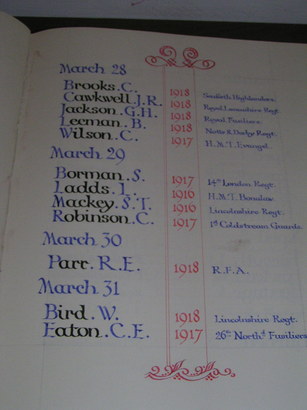 March 28
Brooks. C. 1918 Seaforth Highlanders.
Cawkwell. J.R. 1918 Royal Lancashire Regt
Jackson. G.H. 1918 Royal Fusiliers.
Leeman. B. 1918 Notts & Derbys Regt.
Wilson. C. 1917 H.M.T.
March 29
Borman. S. 1917 14th London Regt.
Ladds. 1916 H.M.T.
Mackey. S.T. 1916 Lincolnshire Regt.
Robinson. C. 1917 1st Coldstream Guards.
March 30
Parr. R.E. 1918 R.F.A.
March 31
Bird. W. 1918 Lincolnshire Regt.
Eaton. C.E. 1917 26th Northd Fusiliers